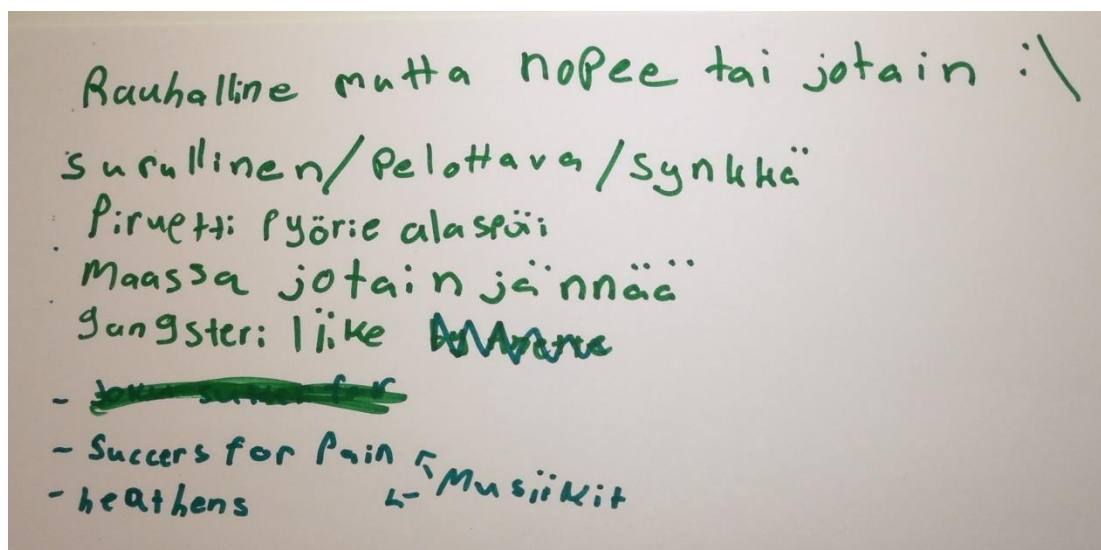 Rauhalline mutta nopee tai jotain :\
surullinen/pelottava/synkkä
Piruetti Pyörie alaspäi
Maassa jotain jännää
gangsteri liike
- Succers for Pain
- heathens
Musiikit